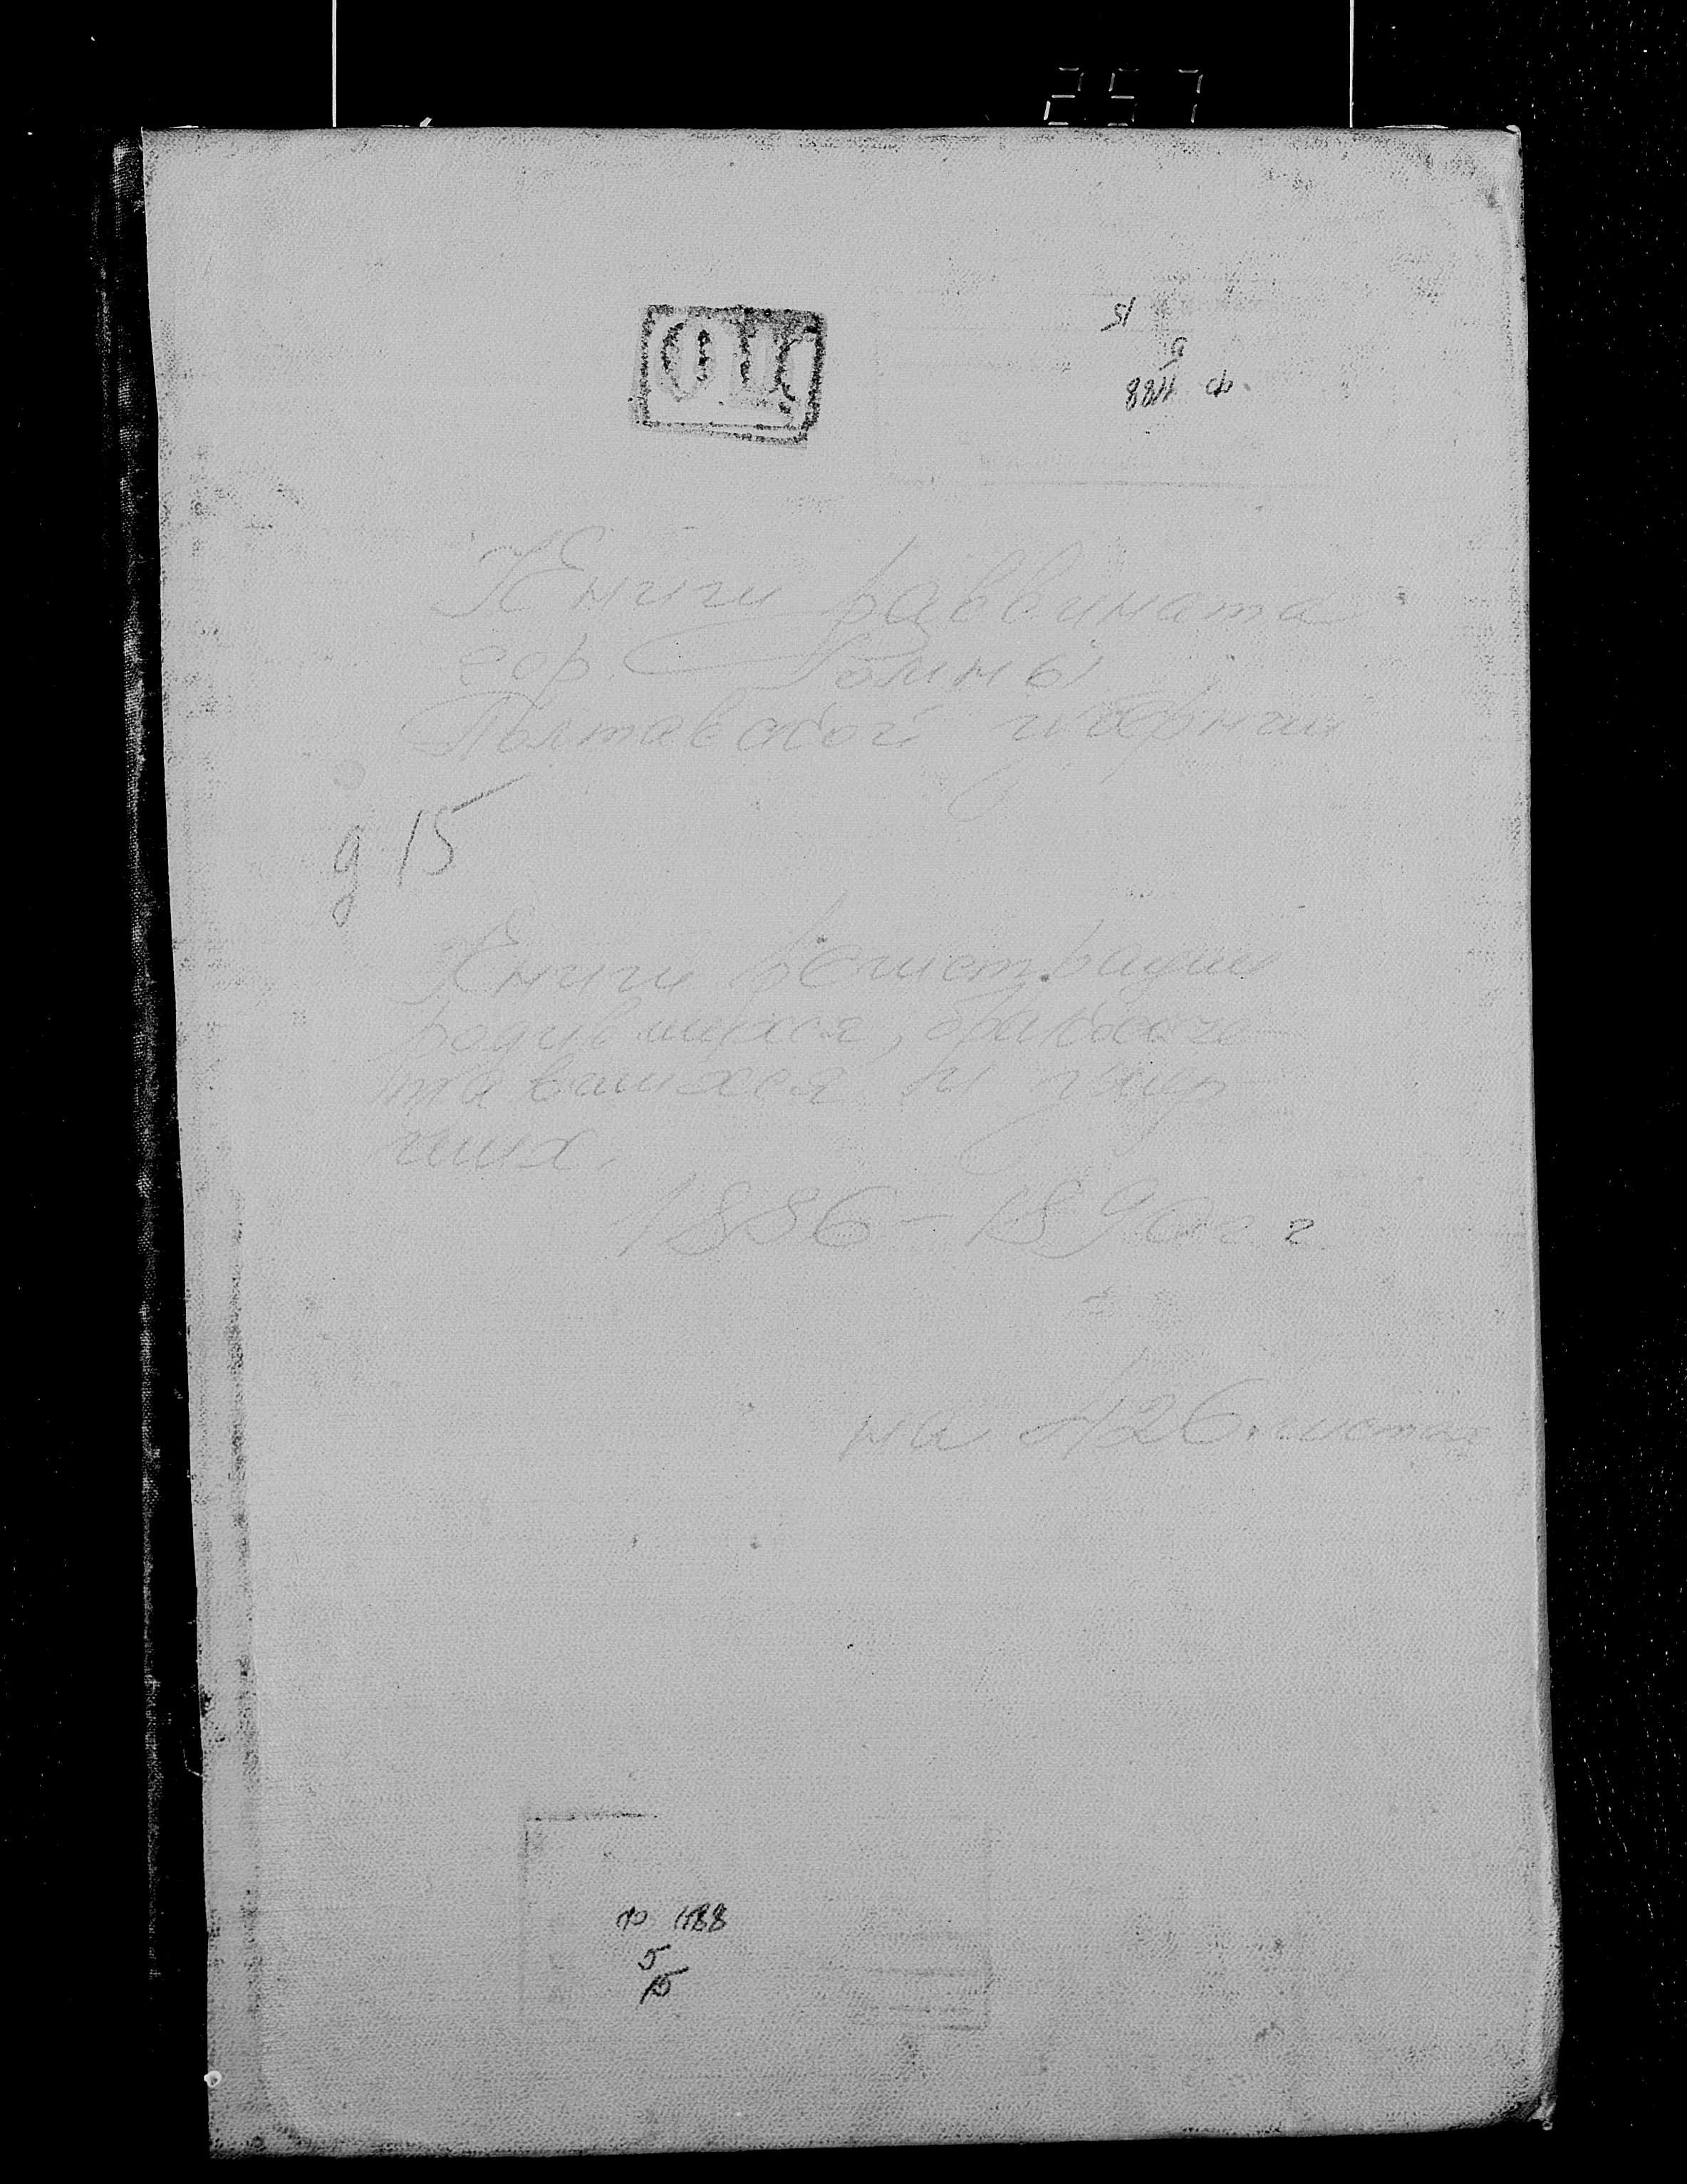 257
ОЦ
15
5
ф 1188
Книги раввината
гор. Ромны
Полтавской губернии
д 15
Книги регистрации
родившихся, бракосоче
тавшихся и умер
ших.
1886-1890 г г
на 426 листах
ф 1188
5
15